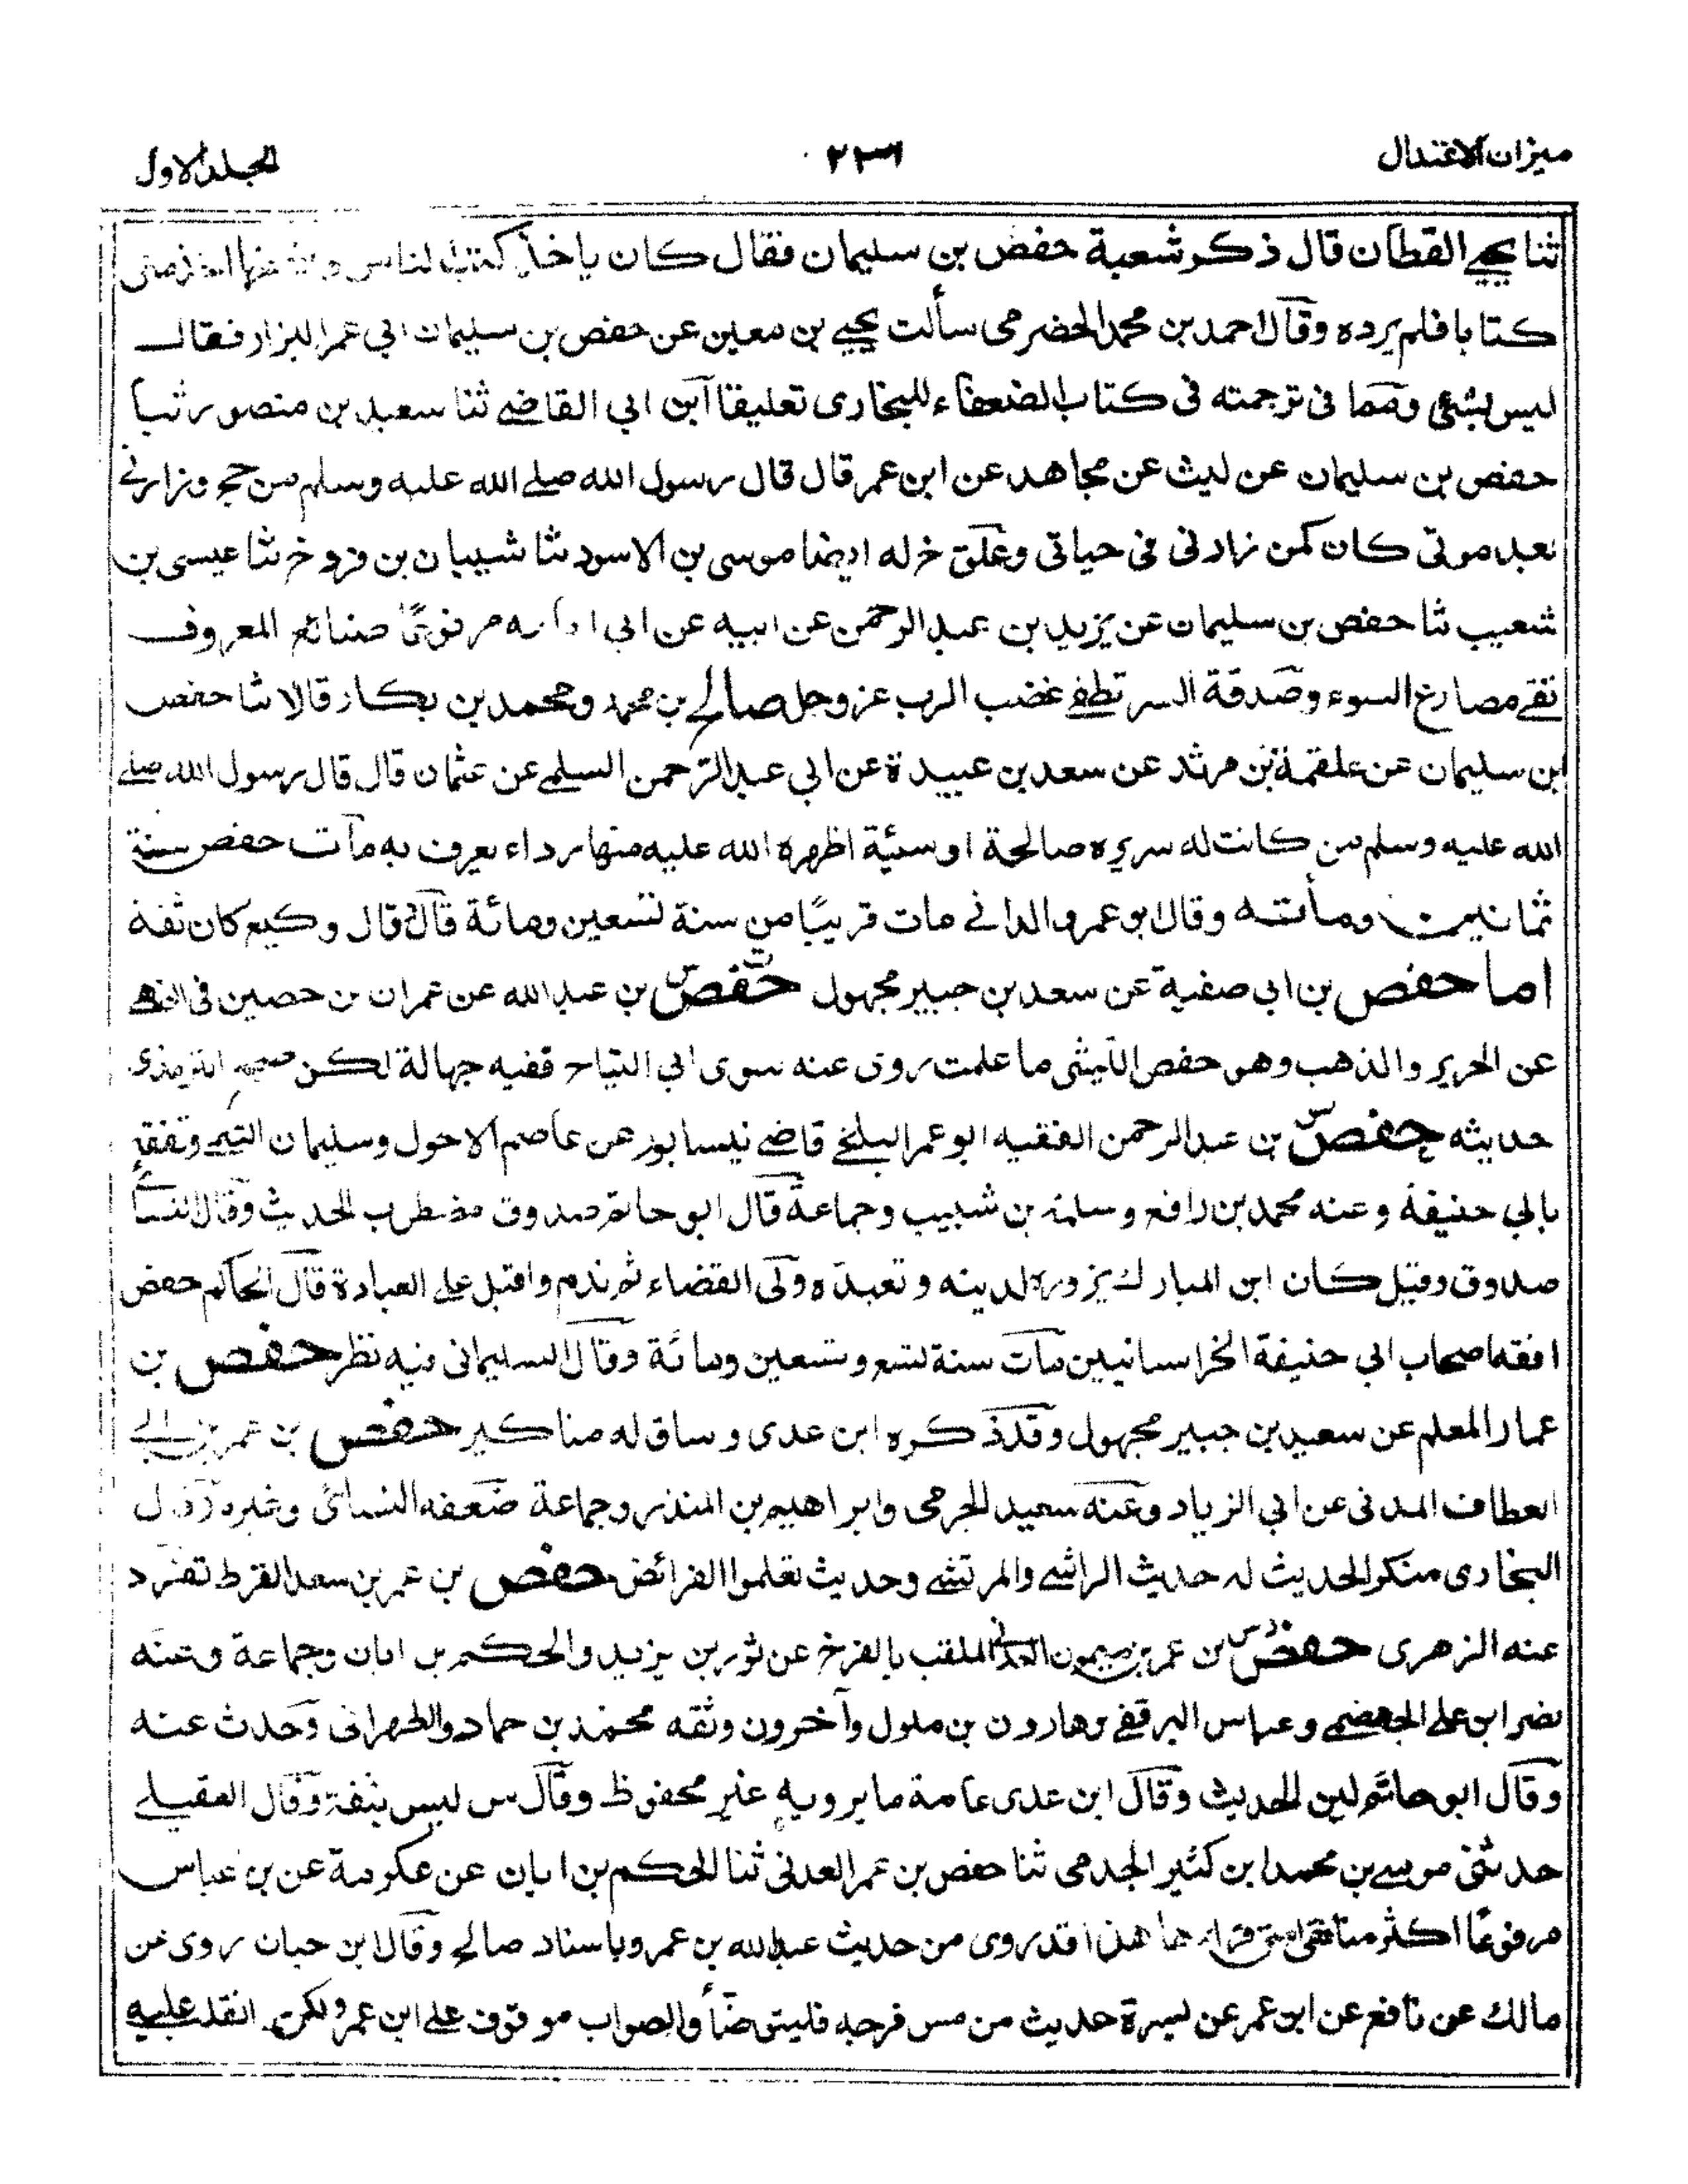 ميزان الاعتدال
٢٣٦
المجلد الاول
ثنا يحيے القطان قال ذكر شعبة حفص بن سليمان فقال كان ياخذ كتب الناس و اخذ منى
كتابا فلم يرده وقال احمد بن محمد الحضرمى سألت يحيے بن معين عن حفص بن سليمان ابى عمر البزار فقال
ليس بشئ ومما فى ترجمته فى كتاب الضعفاء للبخارى تعليقا ابن ابى القاضے ثنا سعيد بن منصور ثنا
حفص بن سليمان عن ليث عن مجاهد عن ابن عمر قال قال رسول الله صلے الله عليه وسلم من حج وزارنے
بعد موتى كان كمن زارنى فى حياتى وعلق خ له ايضا موسى بن الاسود ثنا شيبان بن فروخ ثنا عيسى بن
شعيب ثنا حفص بن سليمان عن يزيد بن عبد الرحمن عن ابيه عن ابى امامه مرفوعًا صنائع المعروف
تقے مصارع السوء وصدقة السر تطفے غضب الرب عز وجل صالح بن محمد ومحمد بن بكار قالا ثنا حفص
بن سليمان عن علقمة بن مرثد عن سعد بن عبيدة عن ابى عبد الرحمن السلمے عن عثمان قال قال رسول الله صلے
الله عليه وسلم من كانت له سريره صالحة او سيئة اظهره الله عليه منها رداء يعرف به مات حفص سنة
ثمانين ومائته وقال ابو عمرو الدانے مات قريبًا من سنة تسعين ومائة قال قال وكيع كان ثقة
اما حفص بن ابى صفية عن سعد بن جبير مجهول حفص بن عبد الله عن عمران بن حصين فى النهے
عن الحرير والذهب وهو حفص الليثى ما علمت روى عنه سوى ابى التياح ففيه جهالة لكن صحح الترمذى
حديثه حفص بن عبد الرحمن الفقيه ابو عمر البلخے قاضے نيسابور عن عاصم الاحول وسليمان التيمے وتفقه
بابى حنيفة وعنه محمد بن رافع وسلمة بن شبيب وجماعة قال ابو حاتم صدوق مضطرب الحديث وقال النسائے
صدوق وقيل كان ابن المبارك يزوره لدينه وتعبده وولى القضاء ثم ندم واقبل علے العبادة قال الحاكم حفص
افقه اصحاب ابى حنيفة الخراسانيين مات سنة تسع وتسعين ومائة وقال السليمانى فيه نظر حفص بن
عمار المعلم عن سعيد بن جبير مجهول وقد ذكره ابن عدى وساق له مناكير حفص بن عمر بن ابى
العطاف المدنى عن ابى الزياد وعنه سعيد الجرمى وابراهيم بن المنذر وجماعة ضعفه النسائى وغيره وقال
البخارى منكر الحديث له حديث الراشے والمرتشے وحديث تعلموا الفرائض حفص بن عمر بن سعد القرظ تفرد
عنه الزهرى حفص بن عمر بن ميمون العدنى الملقب بالفرخ عن ثور بن يزيد والحكم بن ابان وجماعة وعنه
نضر ابن علے الجهضمے وعباس البرقفے بن هارون بن ملول وآخرون وثقه محمد بن حماد والطهرانى وحدث عنه
وقال ابو حاتم لين الحديث وقال ابن عدى عامة ما يرويه غير محفوظ وقال س ليس بثقة وقال العقيلے
حدثنى موسے بن محمد ابن كثير الجدمى ثنا حفص بن عمر العدنى ثنا الحكم بن ابان عن عكرمة عن بن عباس
مرفوعًا اكثر منافقى امتى قراءها هذا قد روى من حديث عبد الله بن عمرو باسناد صالح وقال ابن حبان روى عن
مالك عن نافع عن ابن عمر عن بسرة حديث من مس فرجه فليتوضأ والصواب موقوف علے ابن عمر ولكن انقد عليه